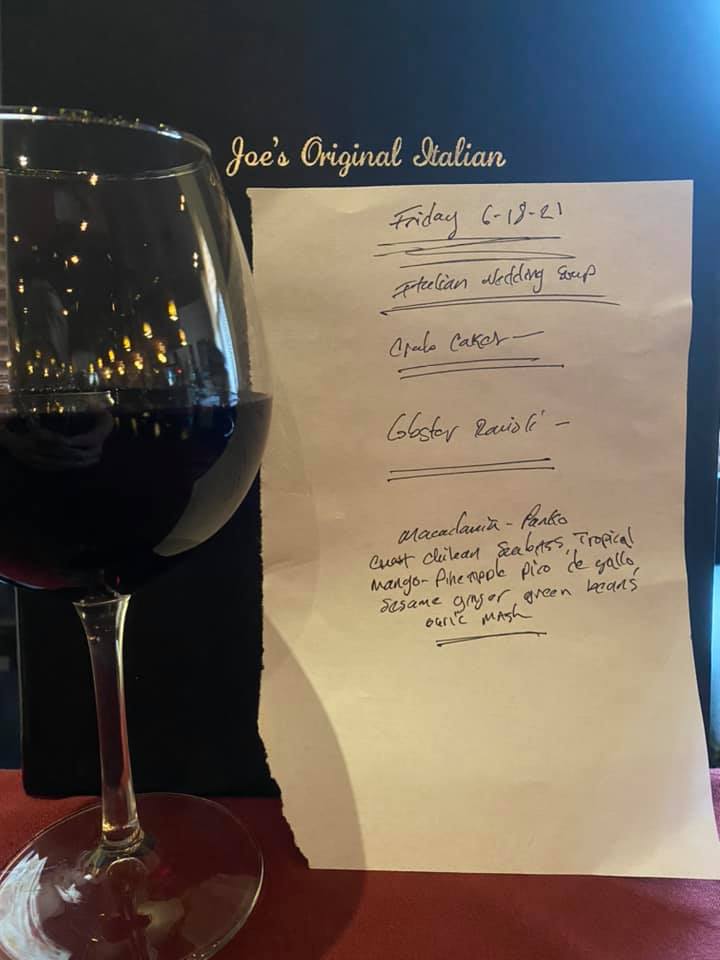 Joe's Original Italian
Friday 6-18-21
Italian Wedding Soup
Crab Cakes —
Lobster Ravioli —
Macadamia - Panko
Crust Chilean Seabass, Tropical
Mango- Pineapple Pico de gallo,
Sesame ginger green beans,
Garlic Mash